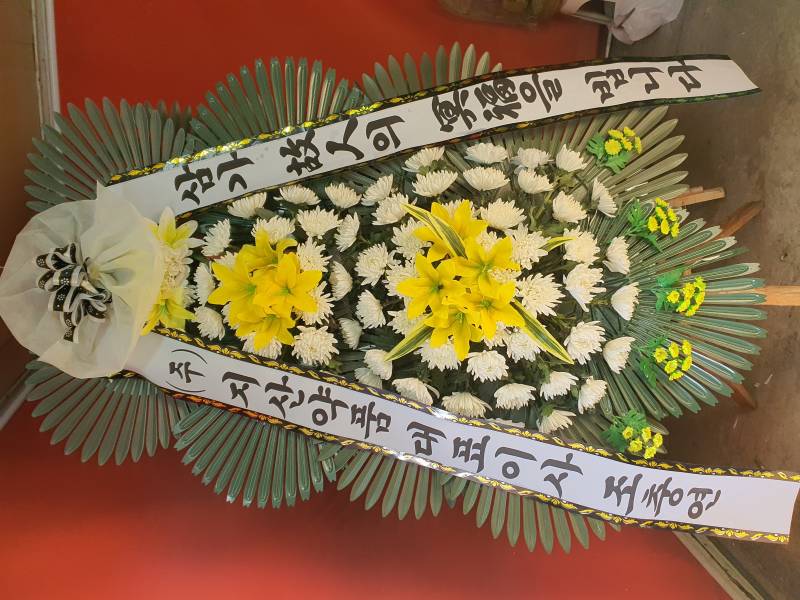 삼가 故人의 冥福을 빕니다
(주) 지산약품 대표이사 조충연